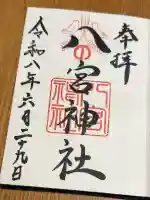 奉拝
八宮神社
令和八年六月二十九日